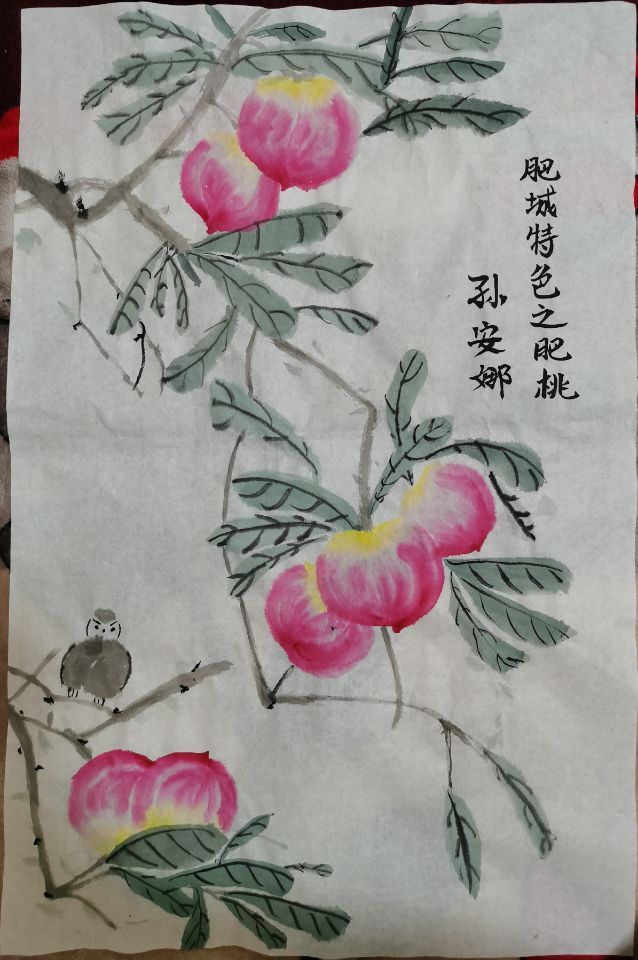 肥城特色之肥桃
孙安娜